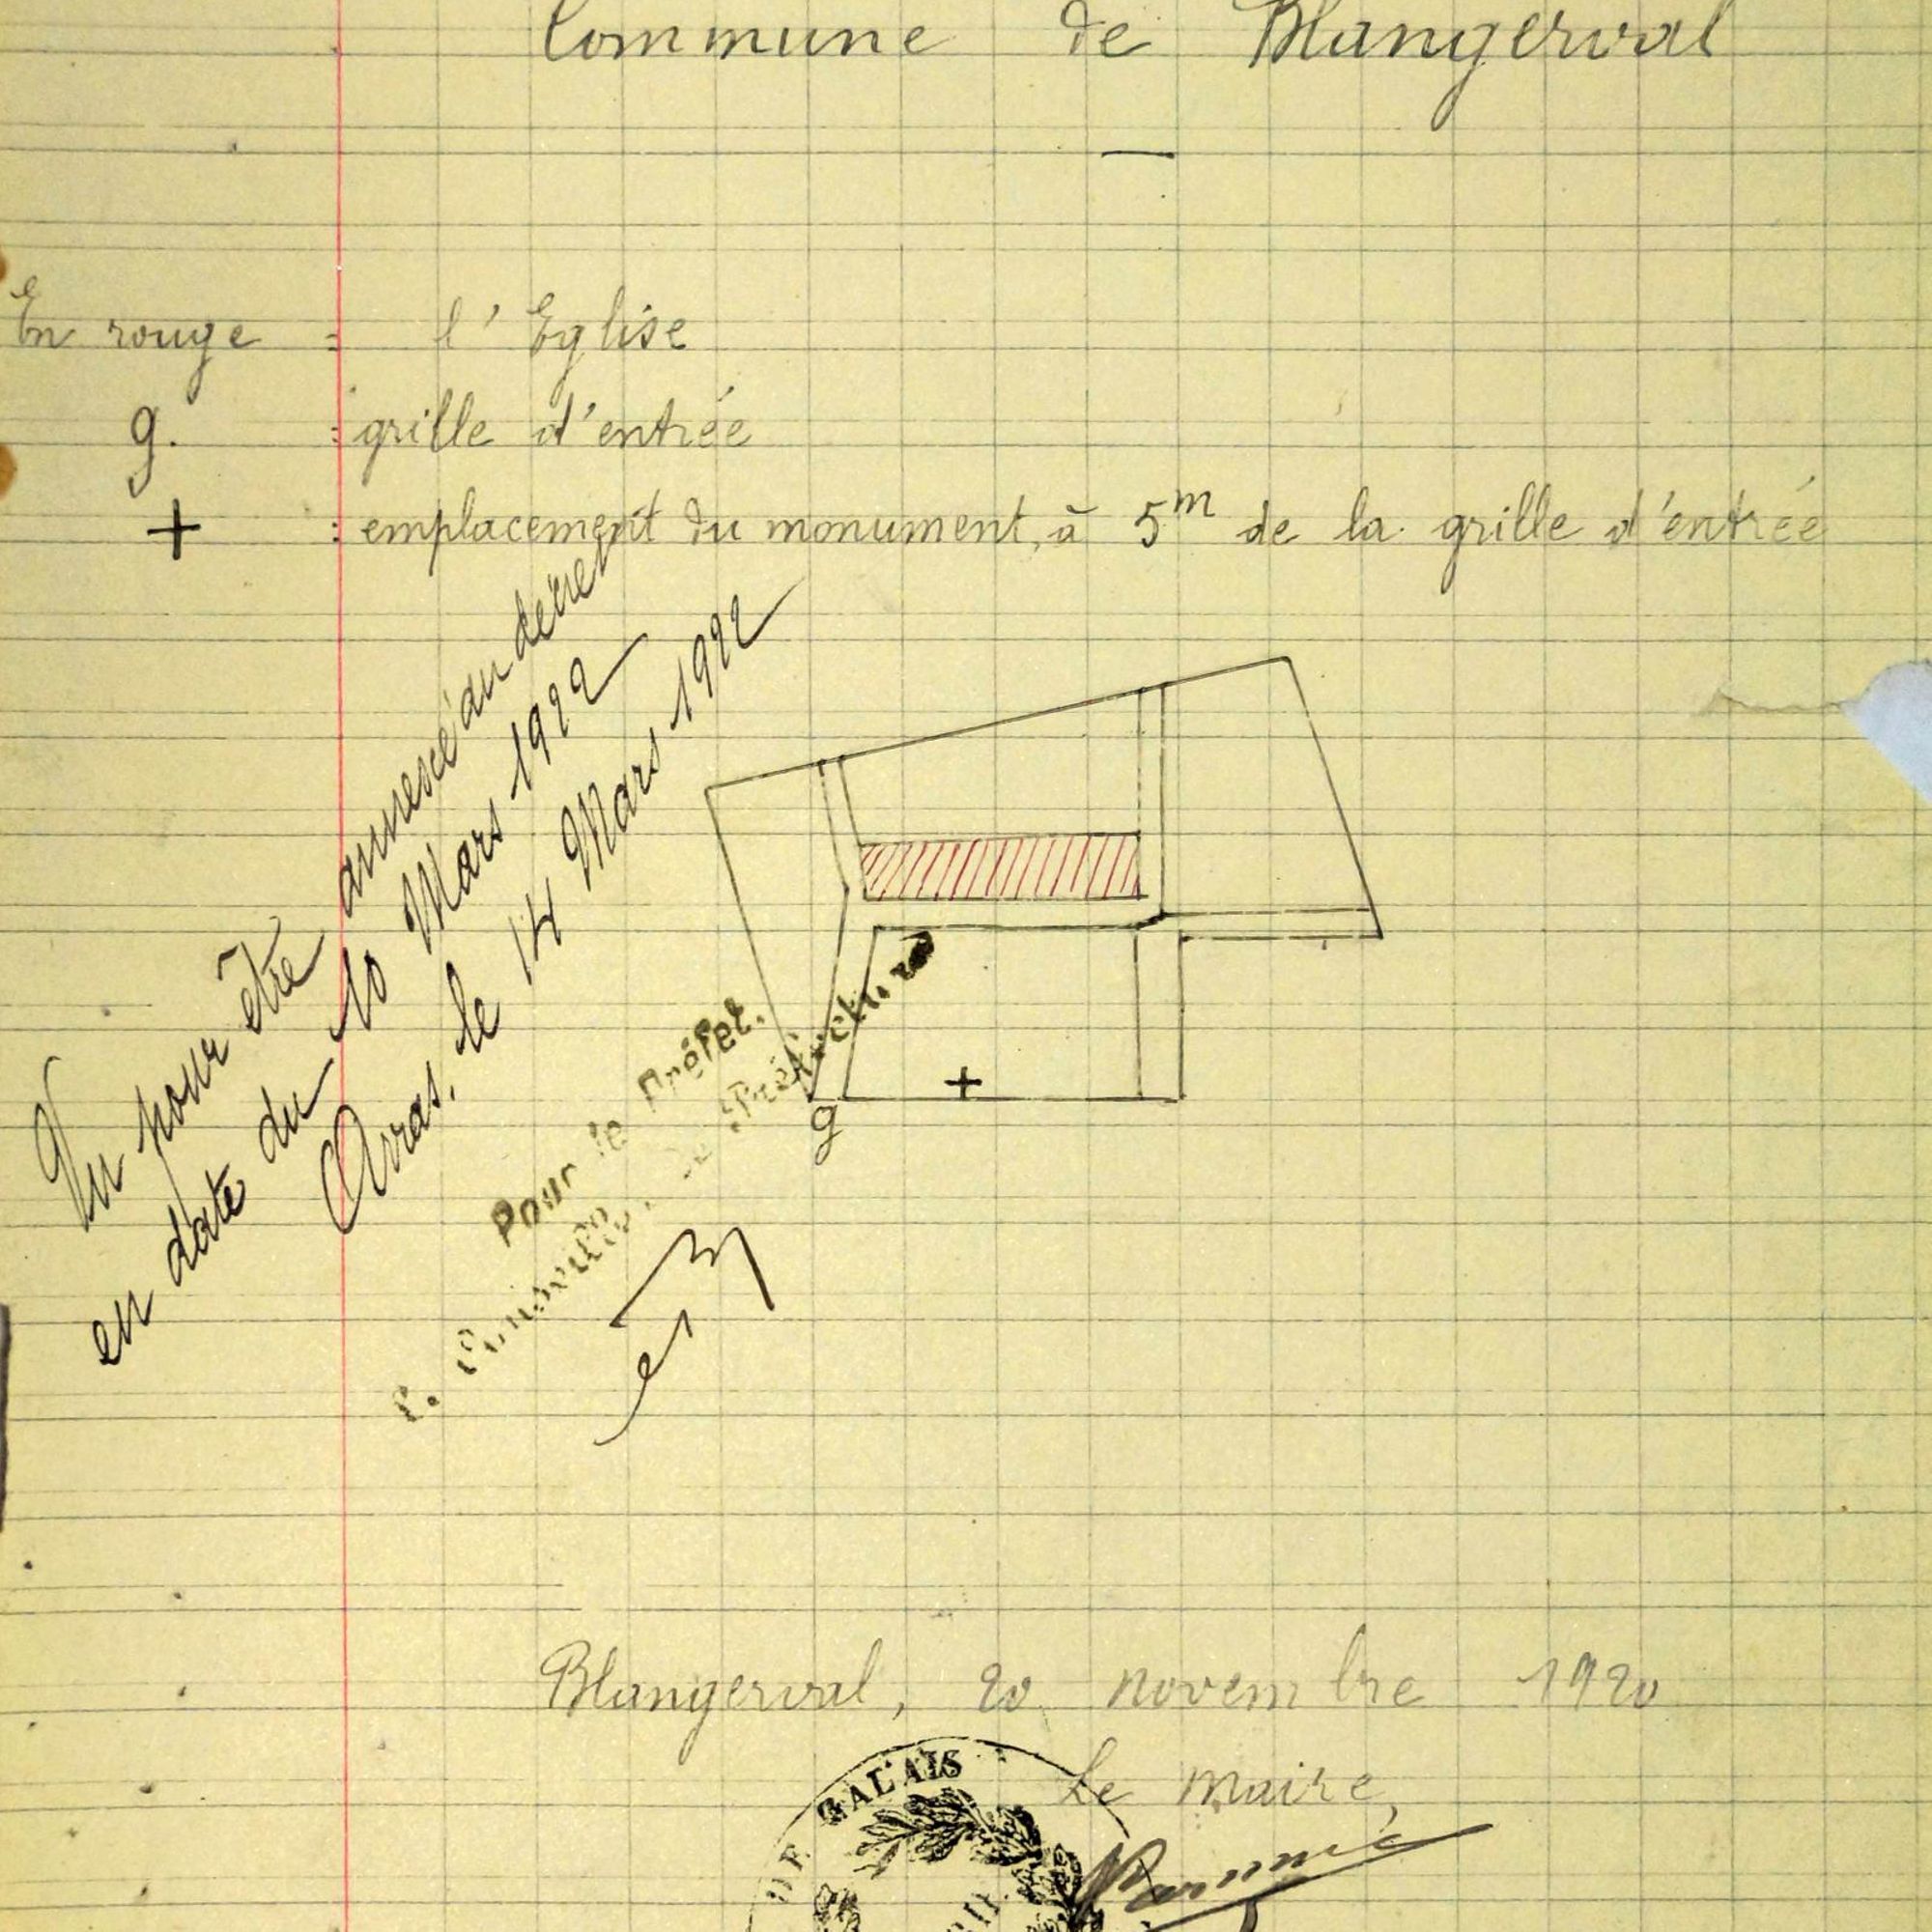 Commune de Blangerval
En rouge : l'Eglise
g. : grille d'entrée
+ : emplacement du monument, à 5m de la grille d'entrée
Vu pour être annexé au décret
en date du 10 Mars 1922
Arras, le 14 Mars 1922
Pour le Préfet.
de Préfecture
+
g
Blangerval, 20 novembre 1920
Le Maire,
DE CALAIS